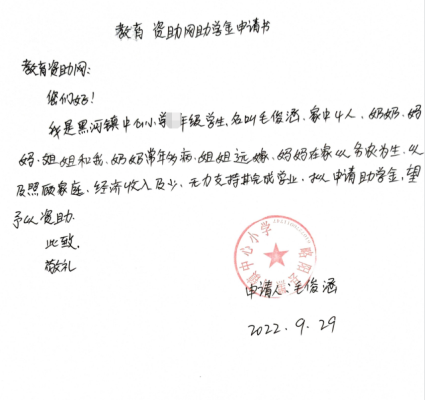 教育资助网助学金申请书
教育资助网:
您们好!
我是黑河镇中心小学年级学生、名叫毛俊涵、家中4人、奶奶、妈
妈、姐姐和我、奶奶常年多病、姐姐远嫁、妈妈在家以务农为生、以
及照顾家庭、经济收入及少、无力支持其完成学业、拟申请助学金,望
予以资助.
此致,
敬礼
中心小学
略阳
申请人:毛俊涵
2022.9.29